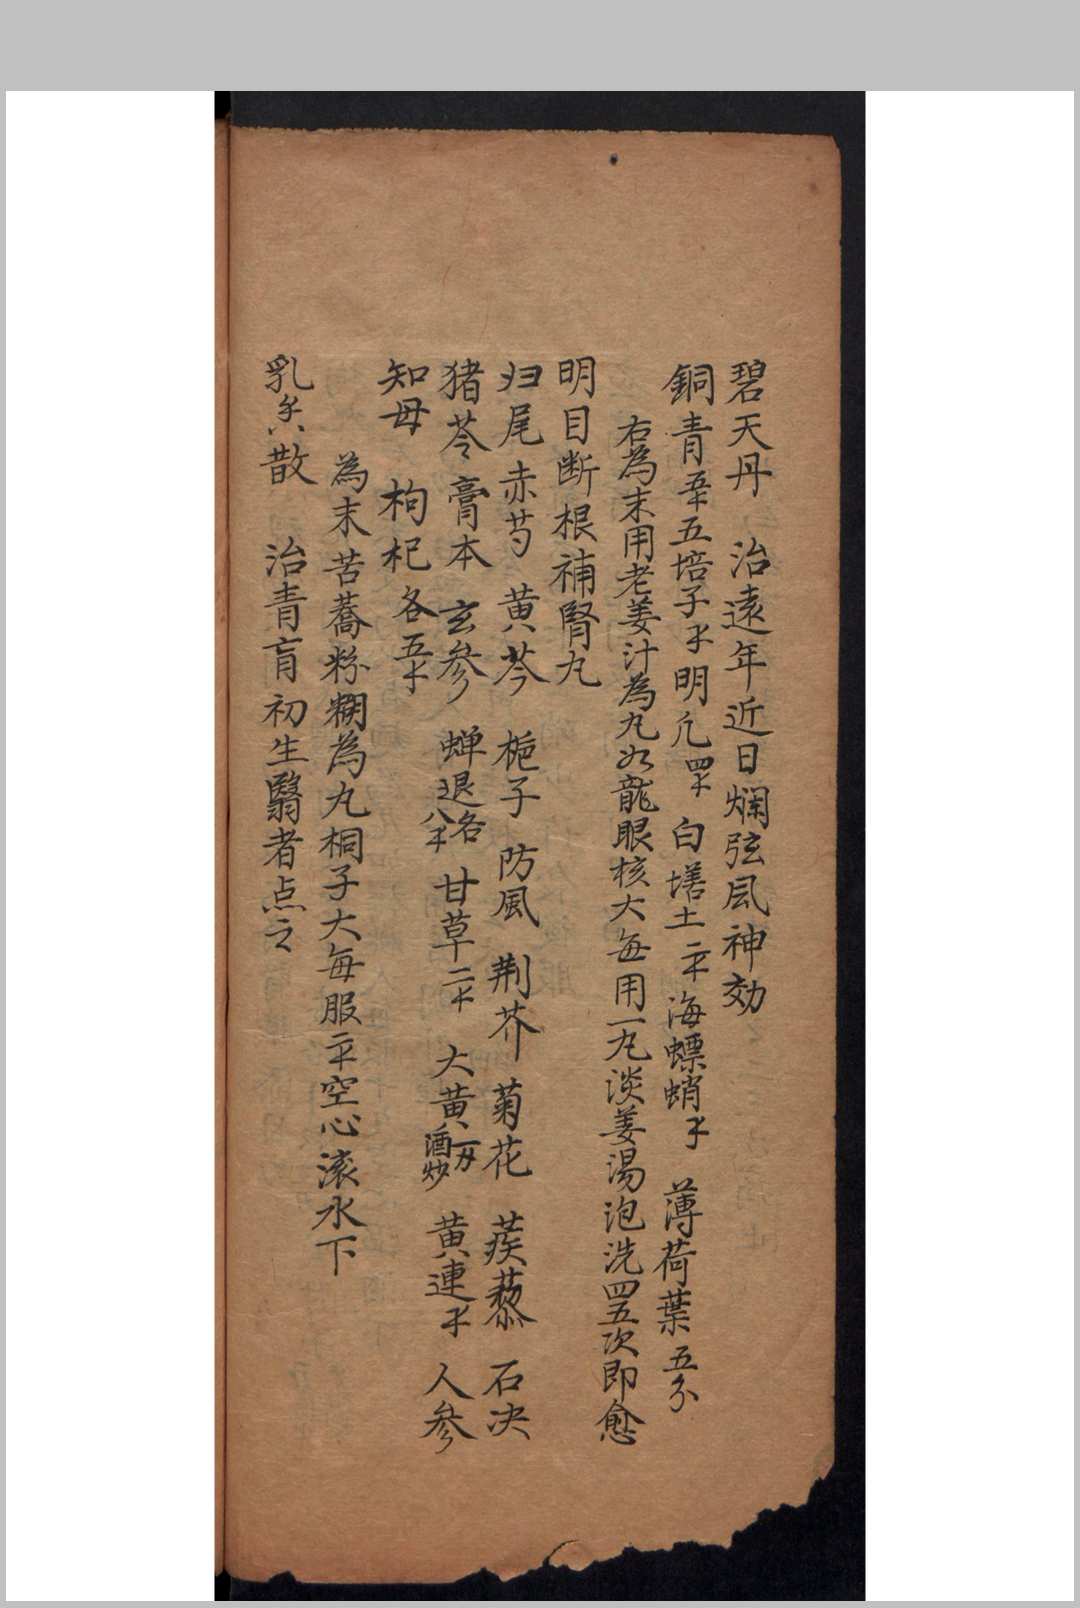 碧天丹　治遠年近日爛弦風神効
銅青五个五培子个明凢四个　白墡土二个海螵蛸个　薄荷葉五分
右為末用老姜汁為丸如龍眼核大每用一丸淡姜湯泡洗四五次即愈
明目断根補腎丸
归尾赤芍　黄芩　梔子　防風　荆芥　菊花　蒺藜　石决
猪苓膏本　玄参　蝉退各八个甘草二个　大黄一两酒炒　黄連个　人参
知母　枸杞各五个
為末苦蕎粉糊為丸桐子大每服二个空心滚水下
乳香散　治青盲初生翳者点之